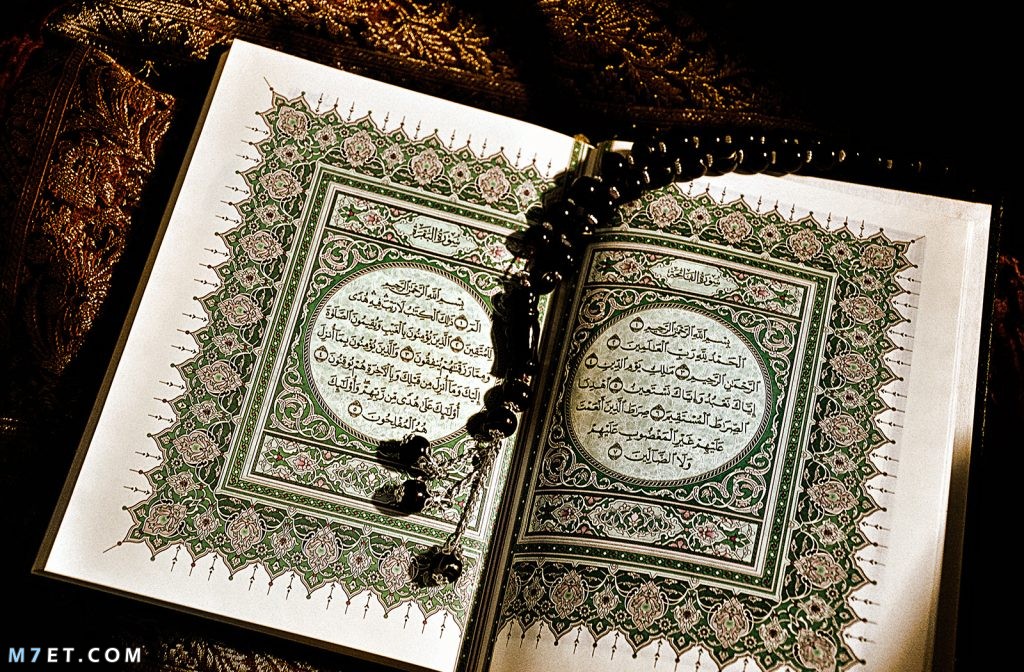 سورة الفاتحة
بسم الله الرحمن الرحيم ١
الحمد لله رب العالمين ٢
الرحمن الرحيم ٣ ملك يوم الدين ٤
إياك نعبد وإياك نستعين ٥ اهدنا
الصراط المستقيم ٦ صراط الذين أنعمت
عليهم غير المغضوب عليهم
ولا الضالين ٧
سورة البقرة
بسم الله الرحمن الرحيم
الم ١ ذلك الكتاب لا ريب فيه هدى
للمتقين ٢ الذين يؤمنون بالغيب ويقيمون الصلاة
ومما رزقناهم ينفقون ٣ والذين يؤمنون بما أنزل
إليك وما أنزل من قبلك وبالآخرة هم يوقنون ٤
أولئك على هدى من ربهم وأولئك
هم المفلحون ٥
M7ET.COM